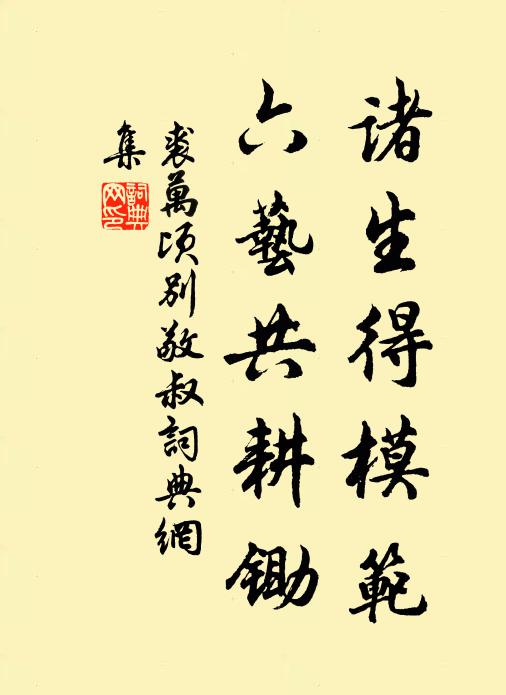 諸生得模範
六藝共耕鋤
裘萬頃別敬叔詞典網
集
詞典網印